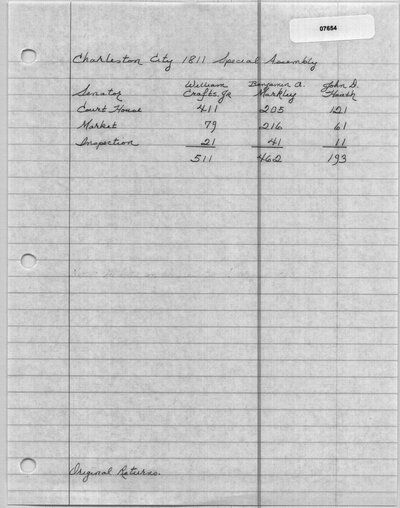 07654
Charleston City 1811 Special Assembly
Senator William Crafts, Jr Benjamin A. Markley John D. Heath
Court House 411 205 121
Market 79 216 61
Inspection 21 41 11
511 462 193
Original Returns.